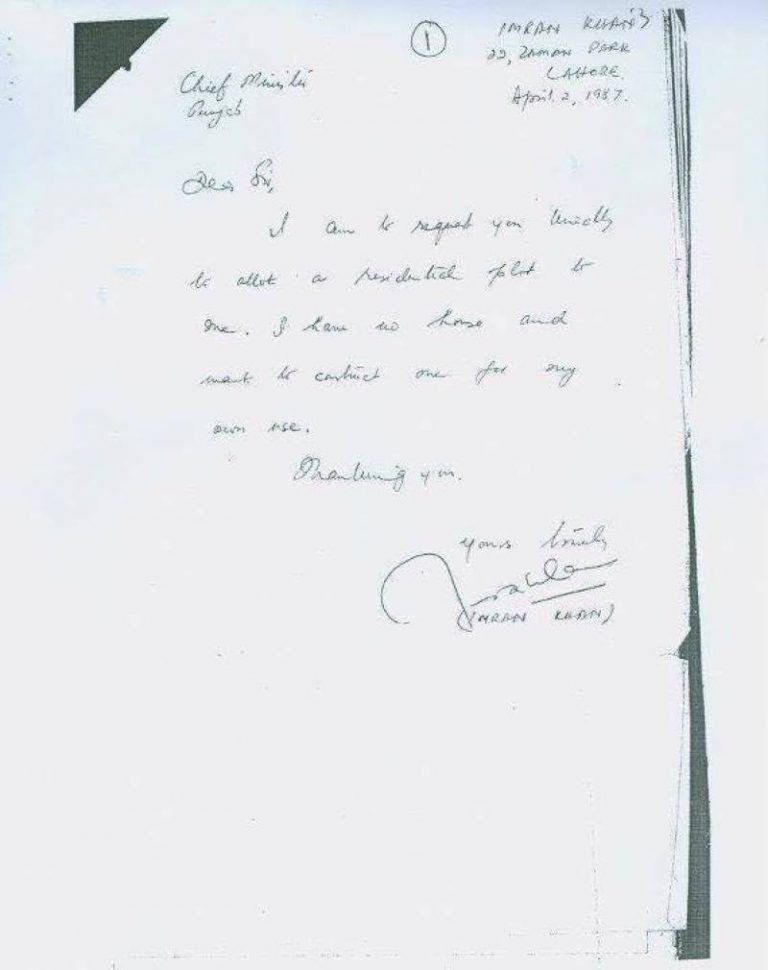 1
IMRAN KHAN
22, ZAMAN PARK
LAHORE.
April 2, 1987.
Chief Minister
Punjab
Dear Sir,
I am to request you kindly
to allot a residential plot to
me. I have no house and
want to contruct one for my
own use.
Thanking you.
yours truely
(IMRAN KHAN)